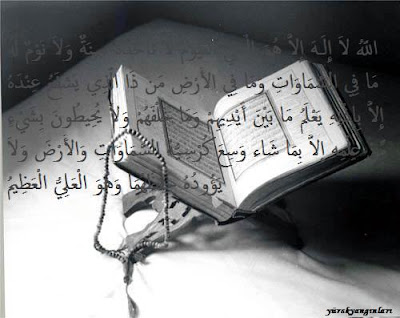 اللّهُ لاَ إِلَهَ إِلاَّ هُوَ الْحَيُّ الْقَيُّومُ لاَ تَأْخُذُهُ سِنَةٌ وَلاَ نَوْمٌ لَّهُ
مَا فِي السَّمَاوَاتِ وَمَا فِي الأَرْضِ مَن ذَا الَّذِي يَشْفَعُ عِنْدَهُ
إِلاَّ بِإِذْنِهِ يَعْلَمُ مَا بَيْنَ أَيْدِيهِمْ وَمَا خَلْفَهُمْ وَلاَ يُحِيطُونَ بِشَيْءٍ
مِّنْ عِلْمِهِ إِلاَّ بِمَا شَاء وَسِعَ كُرْسِيُّهُ السَّمَاوَاتِ وَالأَرْضَ وَلاَ
يَؤُودُهُ حِفْظُهُمَا وَهُوَ الْعَلِيُّ الْعَظِيمُ
yürekyangınları